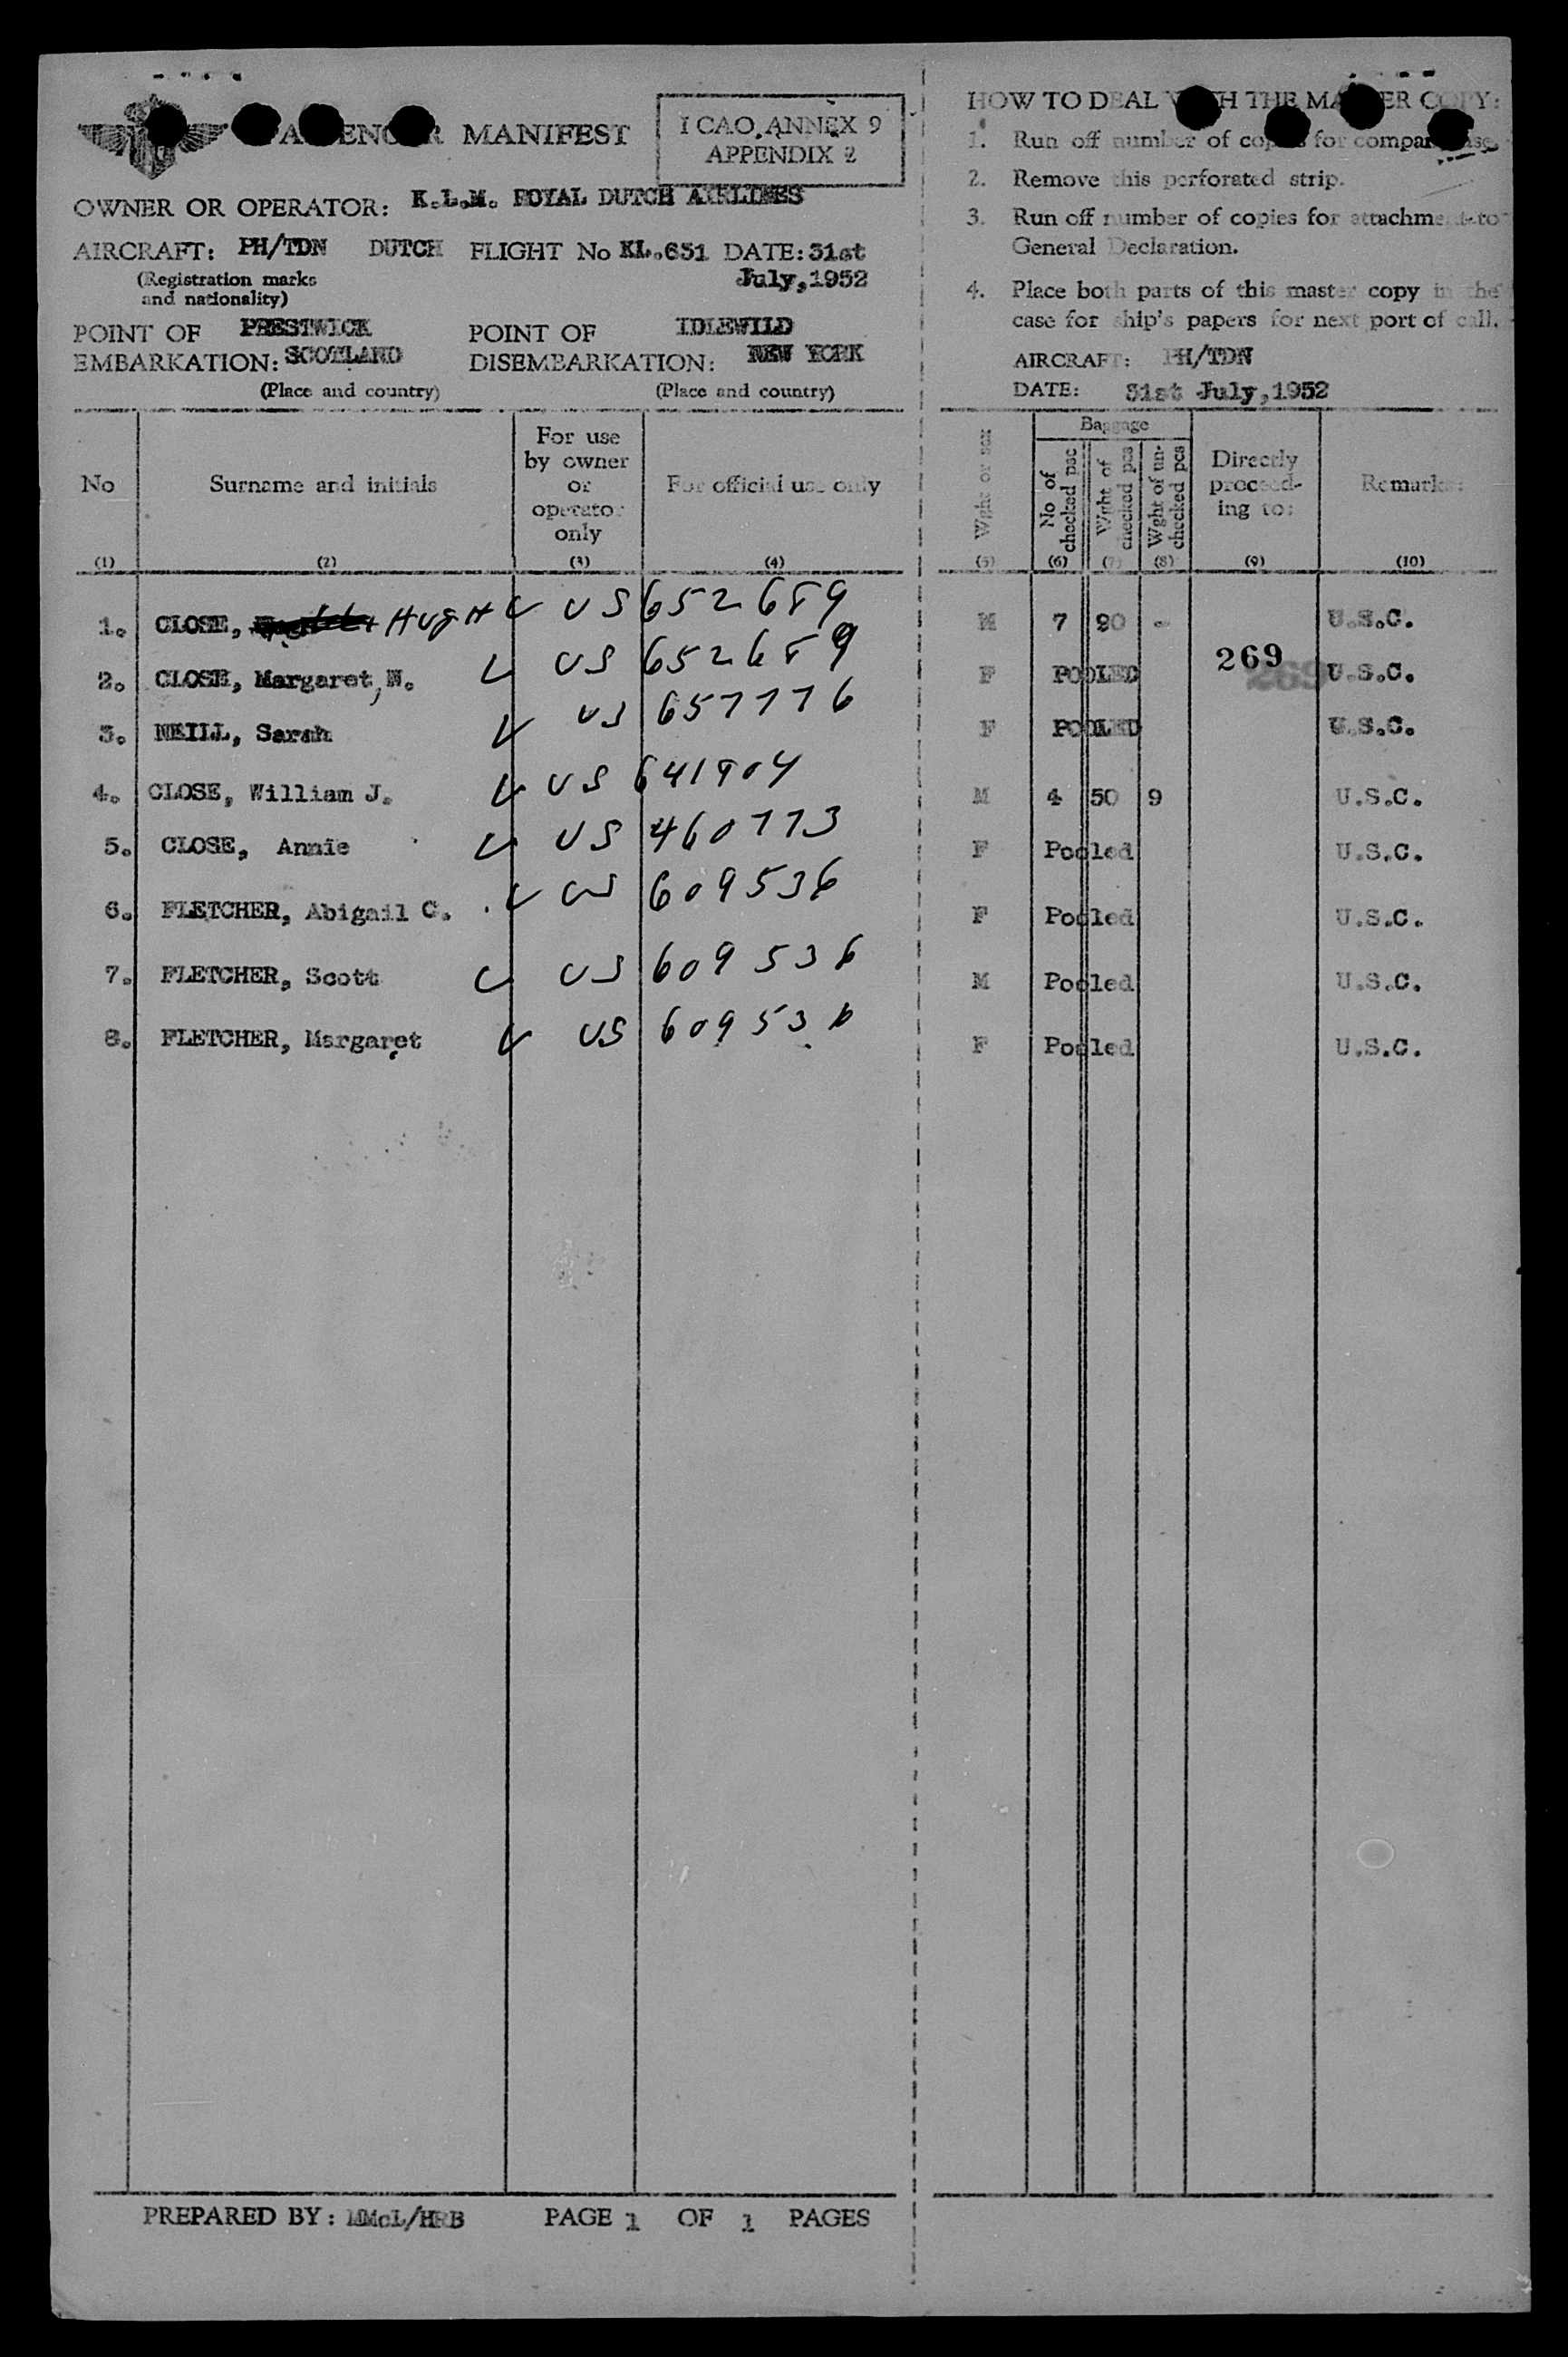 MANIFEST
I CAO ANNEX 9
APPENDIX 2
OWNER OR OPERATOR: K.L.M. ROYAL DUTCH AIRLINES
AIRCRAFT: PH/TDN DUTCH FLIGHT No KL.651 DATE: 31st
(Registration marks July, 1952
and nationality)
POINT OF PRESTWICK POINT OF IDLEWILD
EMBARKATION: SCOTLAND DISEMBARKATION: NEW YORK
(Place and country) (Place and country)
No Surname and initials For use by owner or operator only For official use only
(1) (2) (3) (4)
1. CLOSE, HUGH US 652689
2. CLOSE, Margaret, N. US 652689
3. NEILL, Sarah US 657776
4. CLOSE, William J. US 641904
5. CLOSE, Annie US 460773
6. FLETCHER, Abigail C. US 609536
7. FLETCHER, Scott US 609536
8. FLETCHER, Margaret US 609536
PREPARED BY: MMcL/HRB PAGE 1 OF 1 PAGES
HOW TO DEAL THE COPY:
1. Run off number of for
2. Remove this perforated strip.
3. Run off number of copies for attachment to
General Declaration.
4. Place both parts of this master copy in the
case for ship's papers for next port of call.
AIRCRAFT: PH/TDN
DATE: 31st July, 1952
Baggage
Wght or sex No of checked psc Wght of checked pcs Wght of un-checked pcs Directly proceed-ing to: Remarks:
(5) (6) (7) (8) (9) (10)
M 7 90 - U.S.C.
269
F POOLED U.S.C.
F POOLED U.S.C.
M 4 50 9 U.S.C.
F Pooled U.S.C.
F Pooled U.S.C.
M Pooled U.S.C.
F Pooled U.S.C.